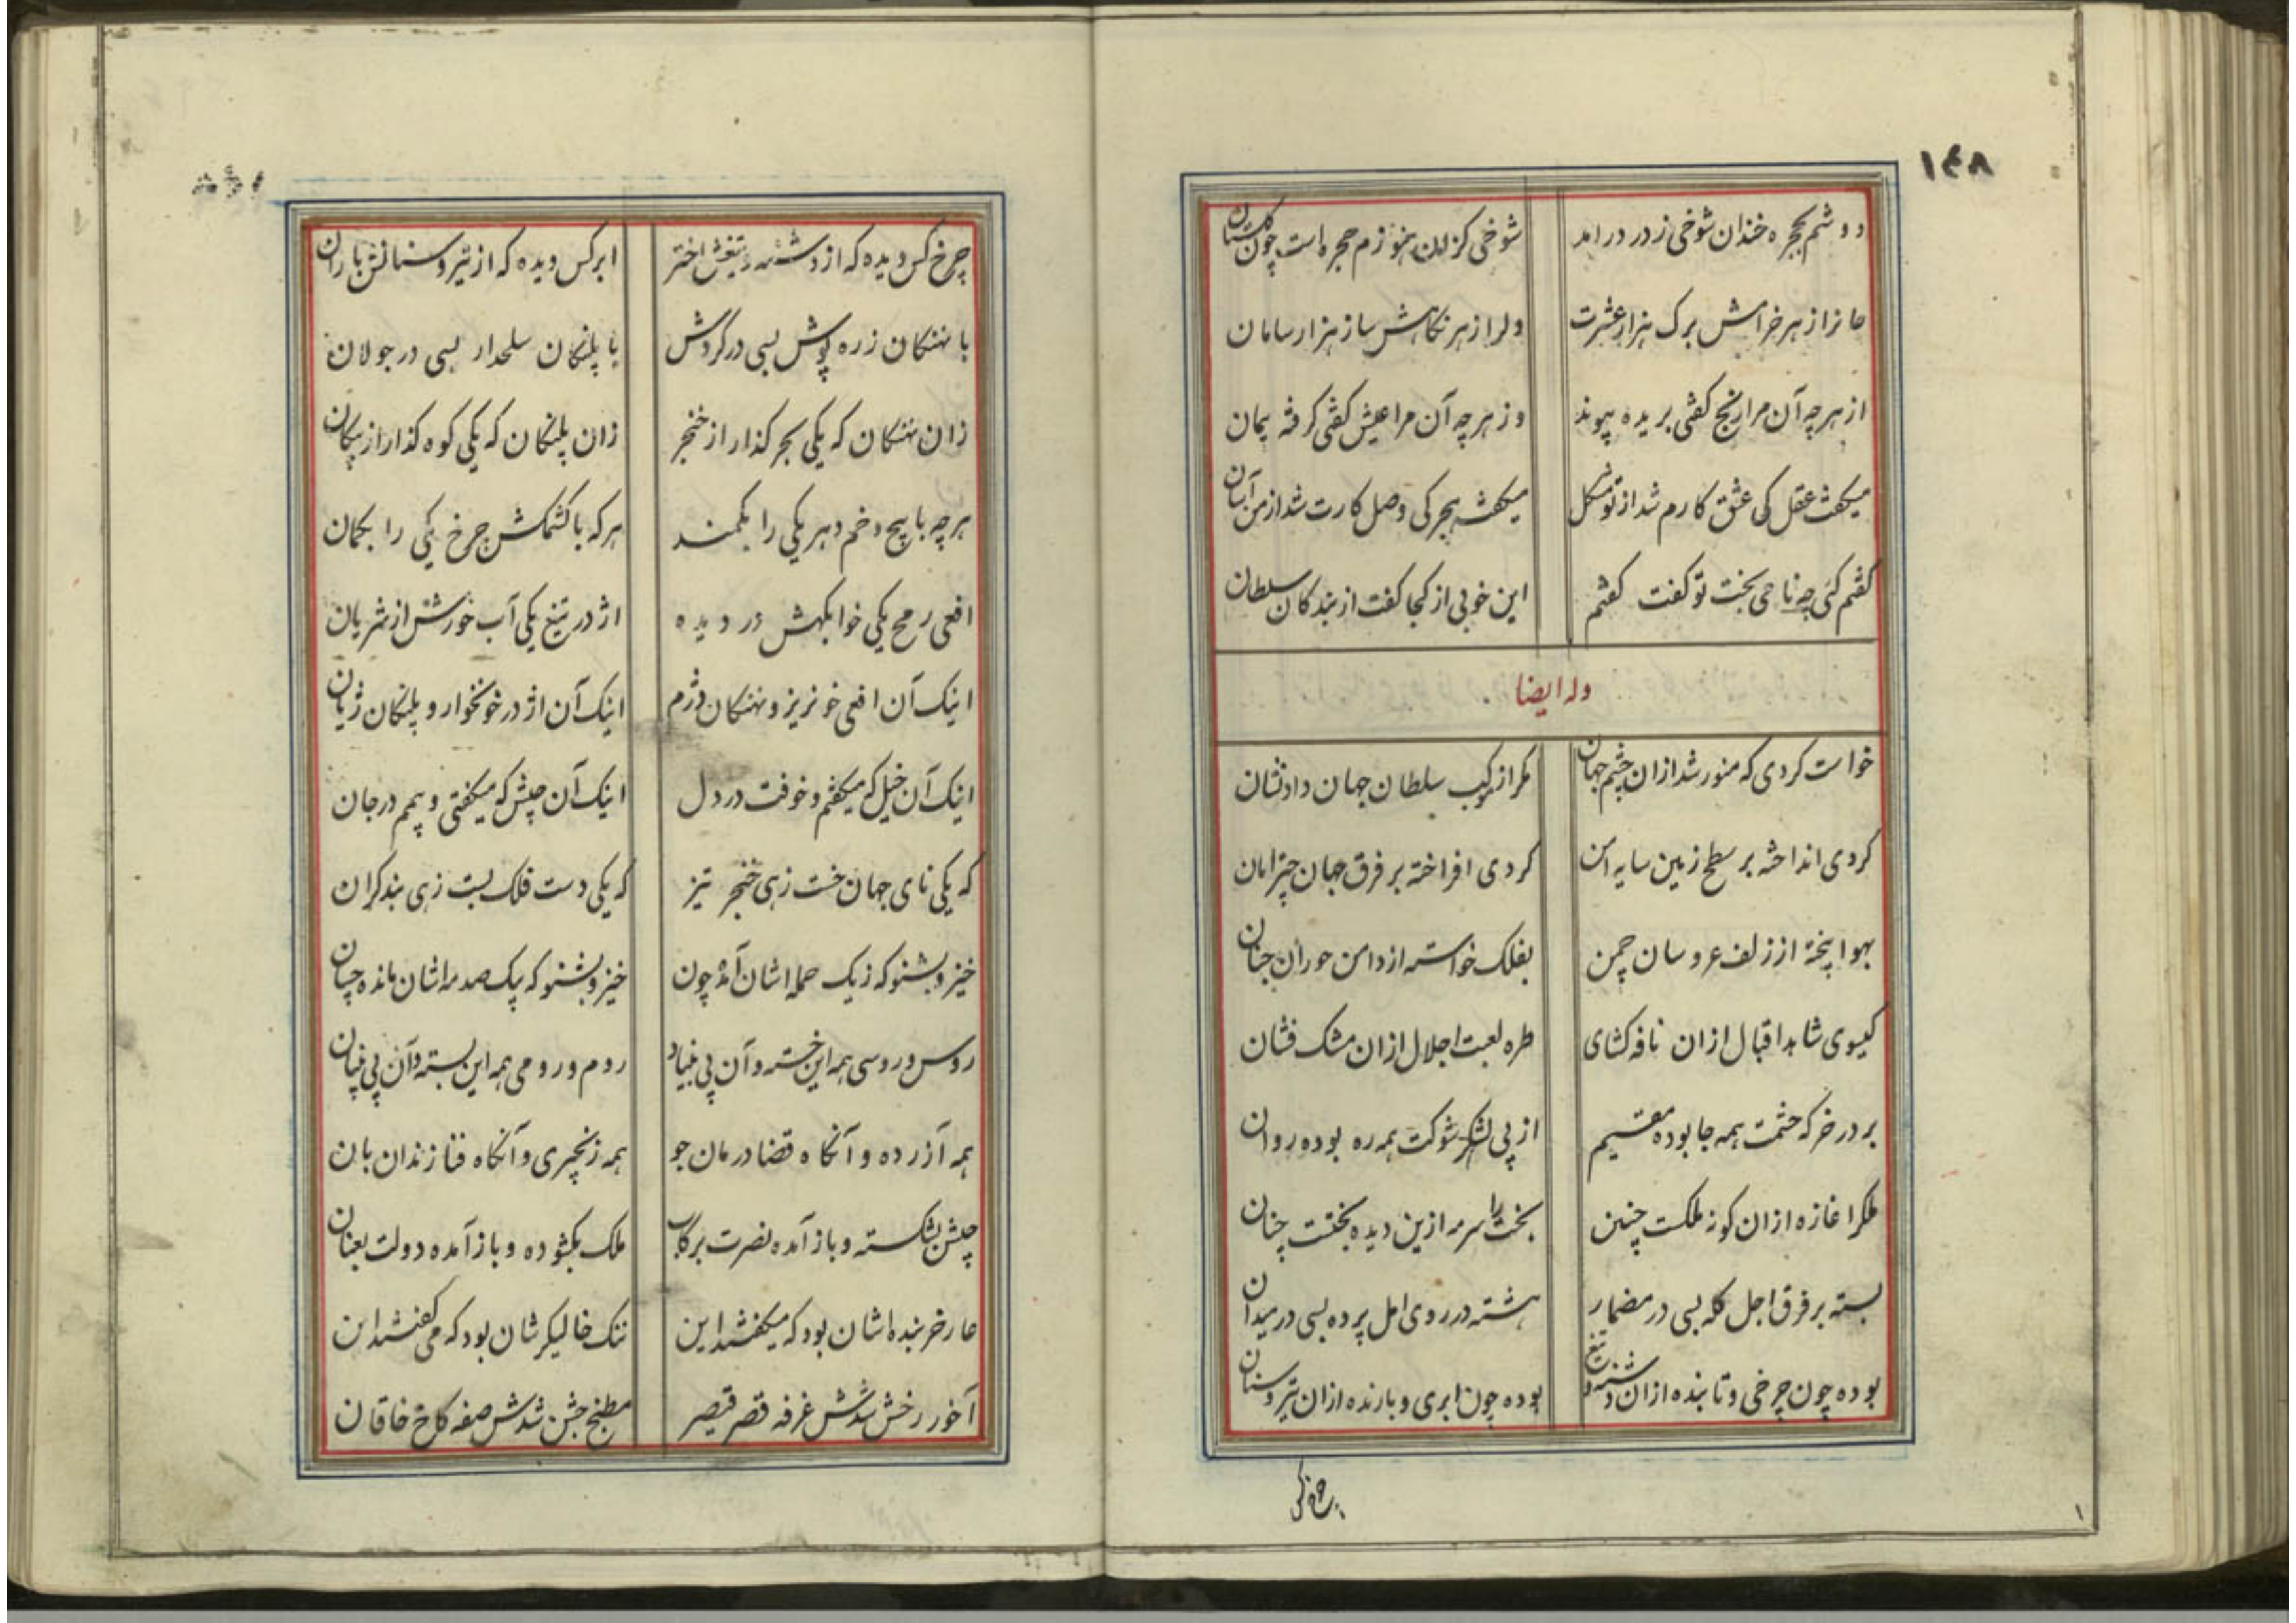 ۱۴۸
دوشم بحجره خندان شوخی ز در درامد
شوخی کزان هنوزم حجره است چون گلستان
جانرا از هر خرامش برک هزار عشرت
دلرا از هر نکاهش ساز هزار سامان
از هر چه آن مرا رنج کفتی بریده پیوند
وز هر چه آن مرا عیش کفتی کرفته پیمان
میکفت عقل کی عشق کارم شد از تو مشکل
میکفت هجر کی وصل کارت شد از من آسان
کفتم کئی چه نامی بخت تو کفت کفتم
این خوبی از کجا کفت از بندکان سلطان
وله ایضا
خواست کردی که منور شد ازان چشم جهان
مکر از موکب سلطان جهان داد نشان
کردی انداخته بر سطح زمین سایه امن
کردی افراخته بر فرق جهان چتر امان
بهوا بیخته از زلف عروسان چمن
بفلک خواسته از دامن حوران جنان
کیسوی شاهد اقبال ازان نافه کشای
طره لعبت اجلال ازان مشک فشان
بر در خرکه حشمت همه جا بوده مقیم
از پی لشکر شوکت همه ره بوده روان
ملکرا غازه ازان کونه ملکت چنین
بخت را سرمه ازین دیده بختت چنان
بسته بر فرق اجل کله بسی در مضمار
هشته در روی امل پرده بسی در میدان
بوده چون چرخی و تابنده ازان دشنه و تیغ
بوده چون ابری و بارنده ازان تیر و سنان
چرخ کس
چرخ کس دیده که از دشنه و تیغش اختر
ابر کس دیده که از تیر و سنانش باران
با نهنکان زره پوش بسی در کردش
با پلنکان سلحدار بسی در جولان
زان نهنکان که یکی بحر کذار از خنجر
زان پلنکان که یکی کوه کذار از پیکان
هر چه با پیچ و خم دهر یکی را بکمند
هر که با کشمکش چرخ یکی را بکمان
افعی رمح یکی خوابکهش در دیده
اژدر تیغ یکی آب خورش از شریان
اینک آن افعی خونریز و نهنکان دژم
اینک آن اژدر خونخوار و پلنکان ژیان
اینک آن خیل که میکفتم و خوفت در دل
اینک آن جیش که میکفتی و بیمم در جان
که یکی نای جهان خست زهی خنجر تیز
که یکی دست فلک بست زهی بند کران
خیز و بشنو که ز یک حمله اشان آمد چون
خیز و بشنو که بیک صدمه اشان مانده چسان
روس و روسی همه این خسته و آن بی بنیاد
روم و رومی همه این بسته و آن بی بنیان
همه آزرده و آنکاه قضا درمان جو
همه زنجیری و آنکاه فنا زندان بان
جیش بشکسته و باز آمده نصرت برکاب
ملک بکشوده و باز آمده دولت بعنان
عار خر بنده اشان بود که میکفتند این
ننک خالیکرشان بود که می کفتند ان
آخور رخش شدش غرفه قصر قیصر
مطبخ جش شدش صفه کاخ خاقان